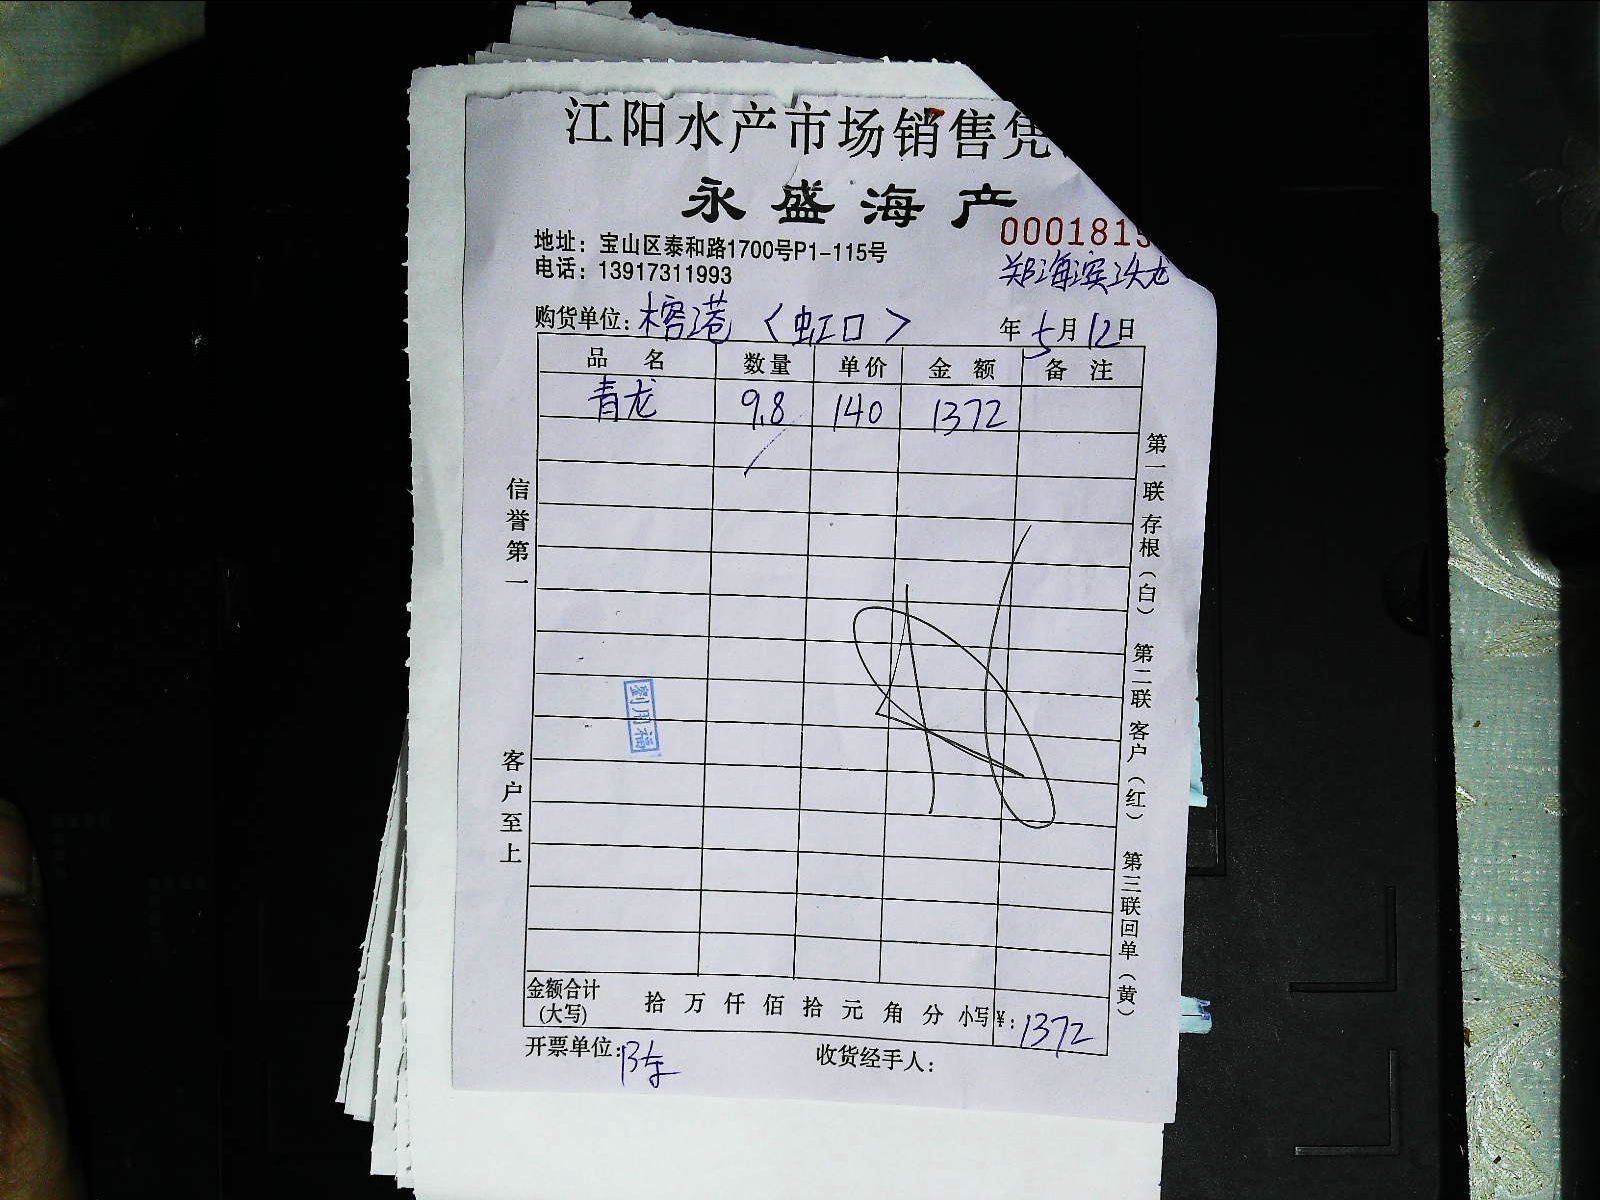 江阳水产市场销售凭
永盛海产
0001815
地址：宝山区泰和路1700号P1-115号
电话：13917311993
郑海滨
购货单位：榕港〈虹口〉 年5月12日
品名 数量 单价 金额 备注
青龙 9.8 140 1372
信誉第一
客户至上
第一联存根（白） 第二联客户（红） 第三联回单（黄）
金额合计（大写） 拾万仟佰拾元角分 小写¥：1372
开票单位：陈
收货经手人：